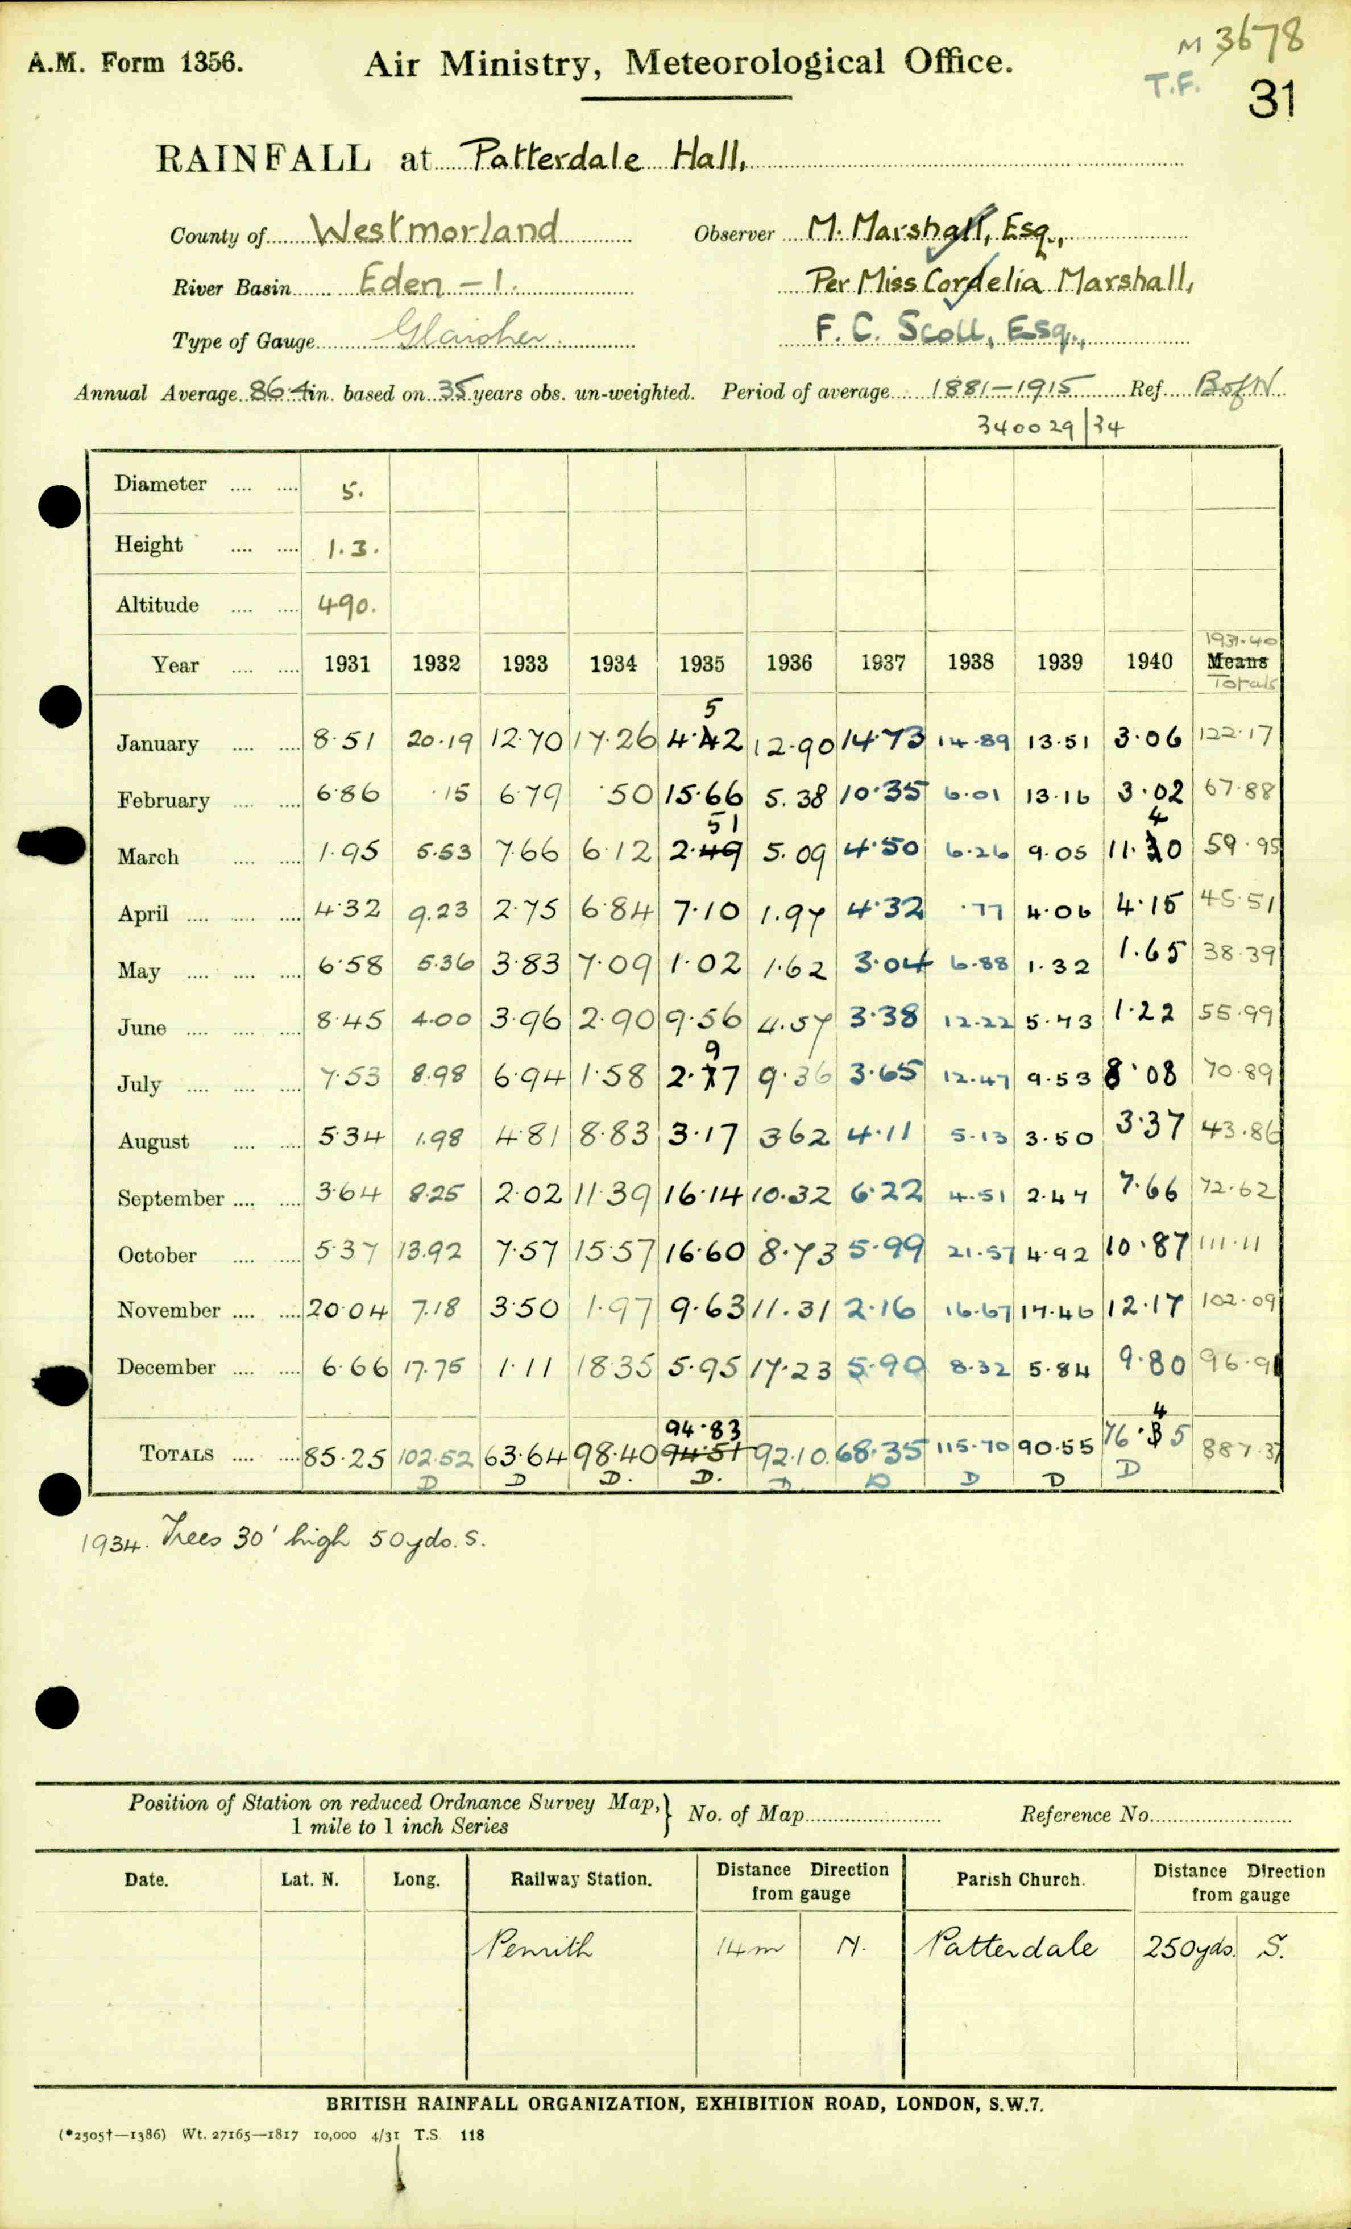 M 3678
A.M. Form 1356. Air Ministry, Meteorological Office.
T.F. 31
RAINFALL at Patterdale Hall,
County of Westmorland Observer M. Marshall, Esq.,
River Basin Eden - 1. Per Miss Cordelia Marshall,
Type of Gauge Glaisher. F. C. Scott, Esq.,
Annual Average 86.4 in. based on 35 years obs. un-weighted. Period of average 1881-1915 Ref. B of W
340029|34
Diameter .... .... 5.
Height .... .... 1.3.
Altitude .... .... 490.
1931-40
Year .... .... 1931 1932 1933 1934 1935 1936 1937 1938 1939 1940 Means
Totals
5
January .... .... 8.51 20.19 12.70 17.26 4.42 12.90 14.73 14.89 13.51 3.06 122.17
February .... .... 6.86 .15 6.79 .50 15.66 5.38 10.35 6.01 13.16 3.02 67.88
51 4
March .... .... 1.95 5.53 7.66 6.12 2.49 5.09 4.50 6.26 9.05 11.30 59.95
April .... .... .... 4.32 9.23 2.75 6.84 7.10 1.97 4.32 .77 4.06 4.15 45.51
May .... .... .... 6.58 5.36 3.83 7.09 1.02 1.62 3.04 6.88 1.32 1.65 38.39
June .... .... .... 8.45 4.00 3.96 2.90 9.56 4.57 3.38 12.22 5.73 1.22 55.99
9
July .... .... .... 7.53 8.98 6.94 1.58 2.77 9.36 3.65 12.47 9.53 8.08 70.89
August .... .... 5.34 1.98 4.81 8.83 3.17 3.62 4.11 5.13 3.50 3.37 43.86
September .... .... 3.64 8.25 2.02 11.39 16.14 10.32 6.22 4.51 2.47 7.66 72.62
October .... .... 5.37 13.92 7.57 15.57 16.60 8.73 5.99 21.57 4.92 10.87 111.11
November .... .... 20.04 7.18 3.50 1.97 9.63 11.31 2.16 16.67 17.46 12.17 102.09
December .... .... 6.66 17.75 1.11 18.35 5.95 17.23 5.90 8.32 5.84 9.80 96.91
94.83 4
TOTALS .... .... 85.25 102.52 63.64 98.40 94.51 92.10 68.35 115.70 90.55 76.35 887.37
D D D. D. D D D D D
1934. Trees 30' high 50yds. S.
Position of Station on reduced Ordnance Survey Map,} No. of Map Reference No.
1 mile to 1 inch Series
Date. Lat. N. Long. Railway Station. Distance Direction from gauge Parish Church. Distance Direction from gauge
Penrith 14m N. Patterdale 250yds. S.
BRITISH RAINFALL ORGANIZATION, EXHIBITION ROAD, LONDON, S.W.7.
(*2505†—1386) Wt. 27165—1817 10,000 4/31 T.S. 118